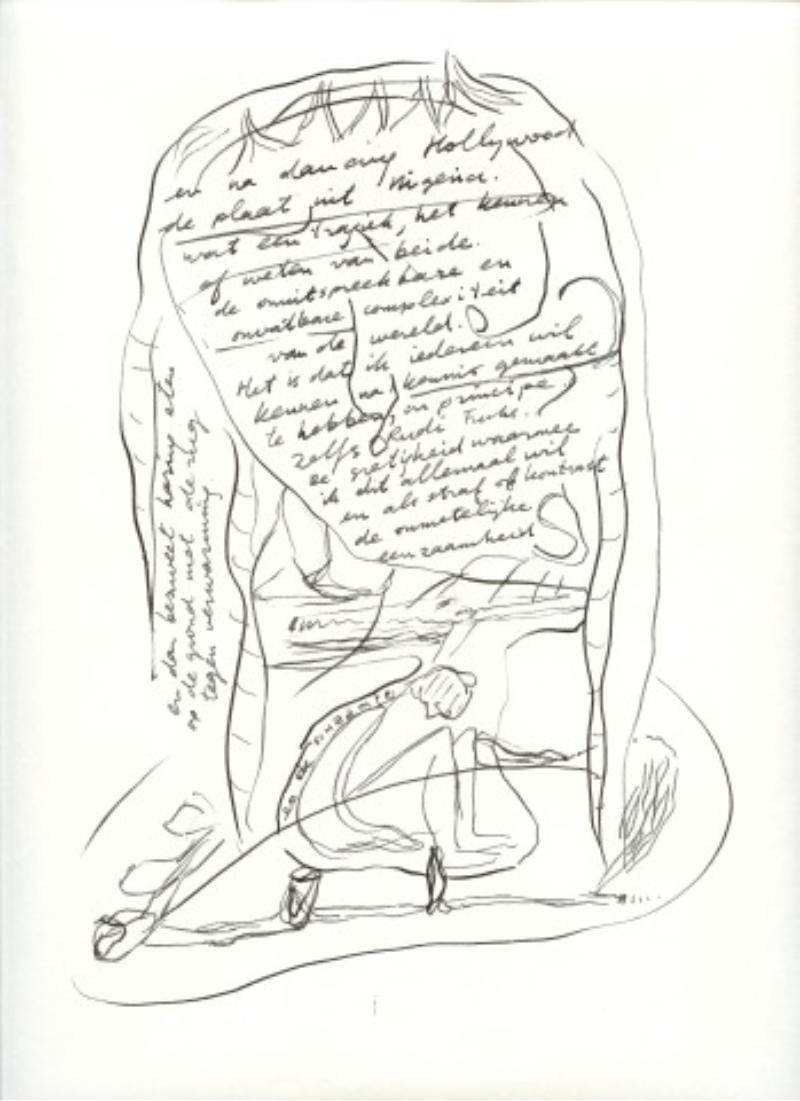 en na dancing Hollywood
de plaat uit Nigeria.
wat een tragiek, het keuren
of weten van beide.
de onuitspreekbare en
onvatbare complexiteit
van de wereld.
Het is dat ik iedereen wil
keuren na kennis gemaakt
te hebben, on principe
zelfs Rudi Fuchs.
de gretigheid waarmee
ik dit allemaal wil
en als straf of kontrast
de onmetelijke
eenzaamheid
en dan bezweet honing eten
op de grond met de rug
tegen verwarming.
en de